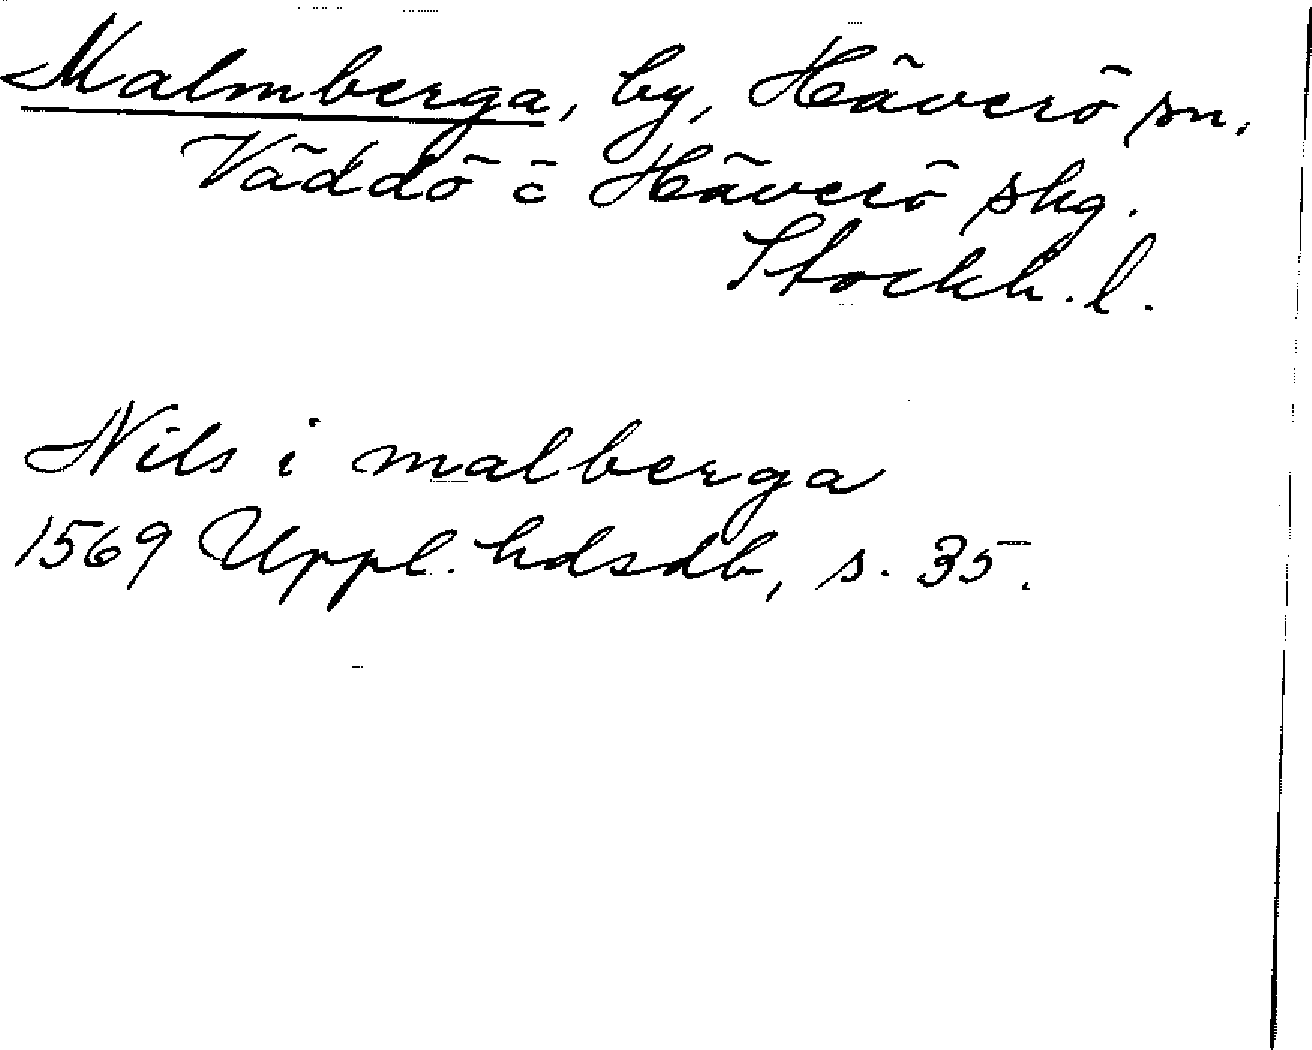 Malmberga, by, Häverö sn.
Väddö o Häverö skg.
Stockh. l.
Nils i malberga
1569 Uppl. hdsdb, s. 35.